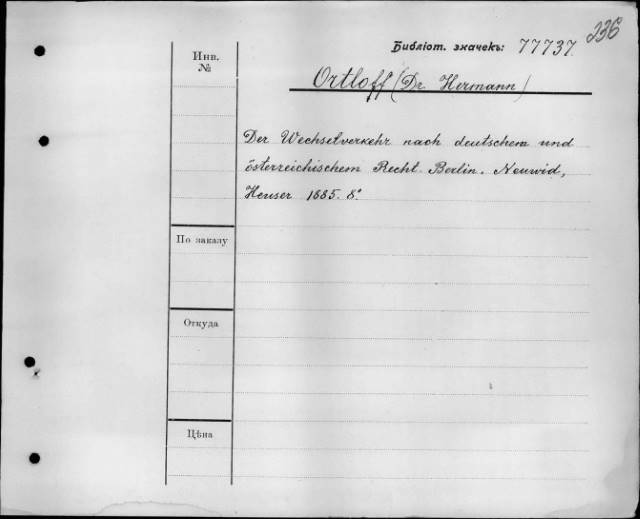 236
Библіот. значекъ: 77737.
Инв.
№
Ortloff (Dr. Hermann)
Der Wechselverkehr nach deutschem und
österreichischem Recht. Berlin. Neuwid,
Heuser 1885. 8°
По заказу
Откуда
Цѣна